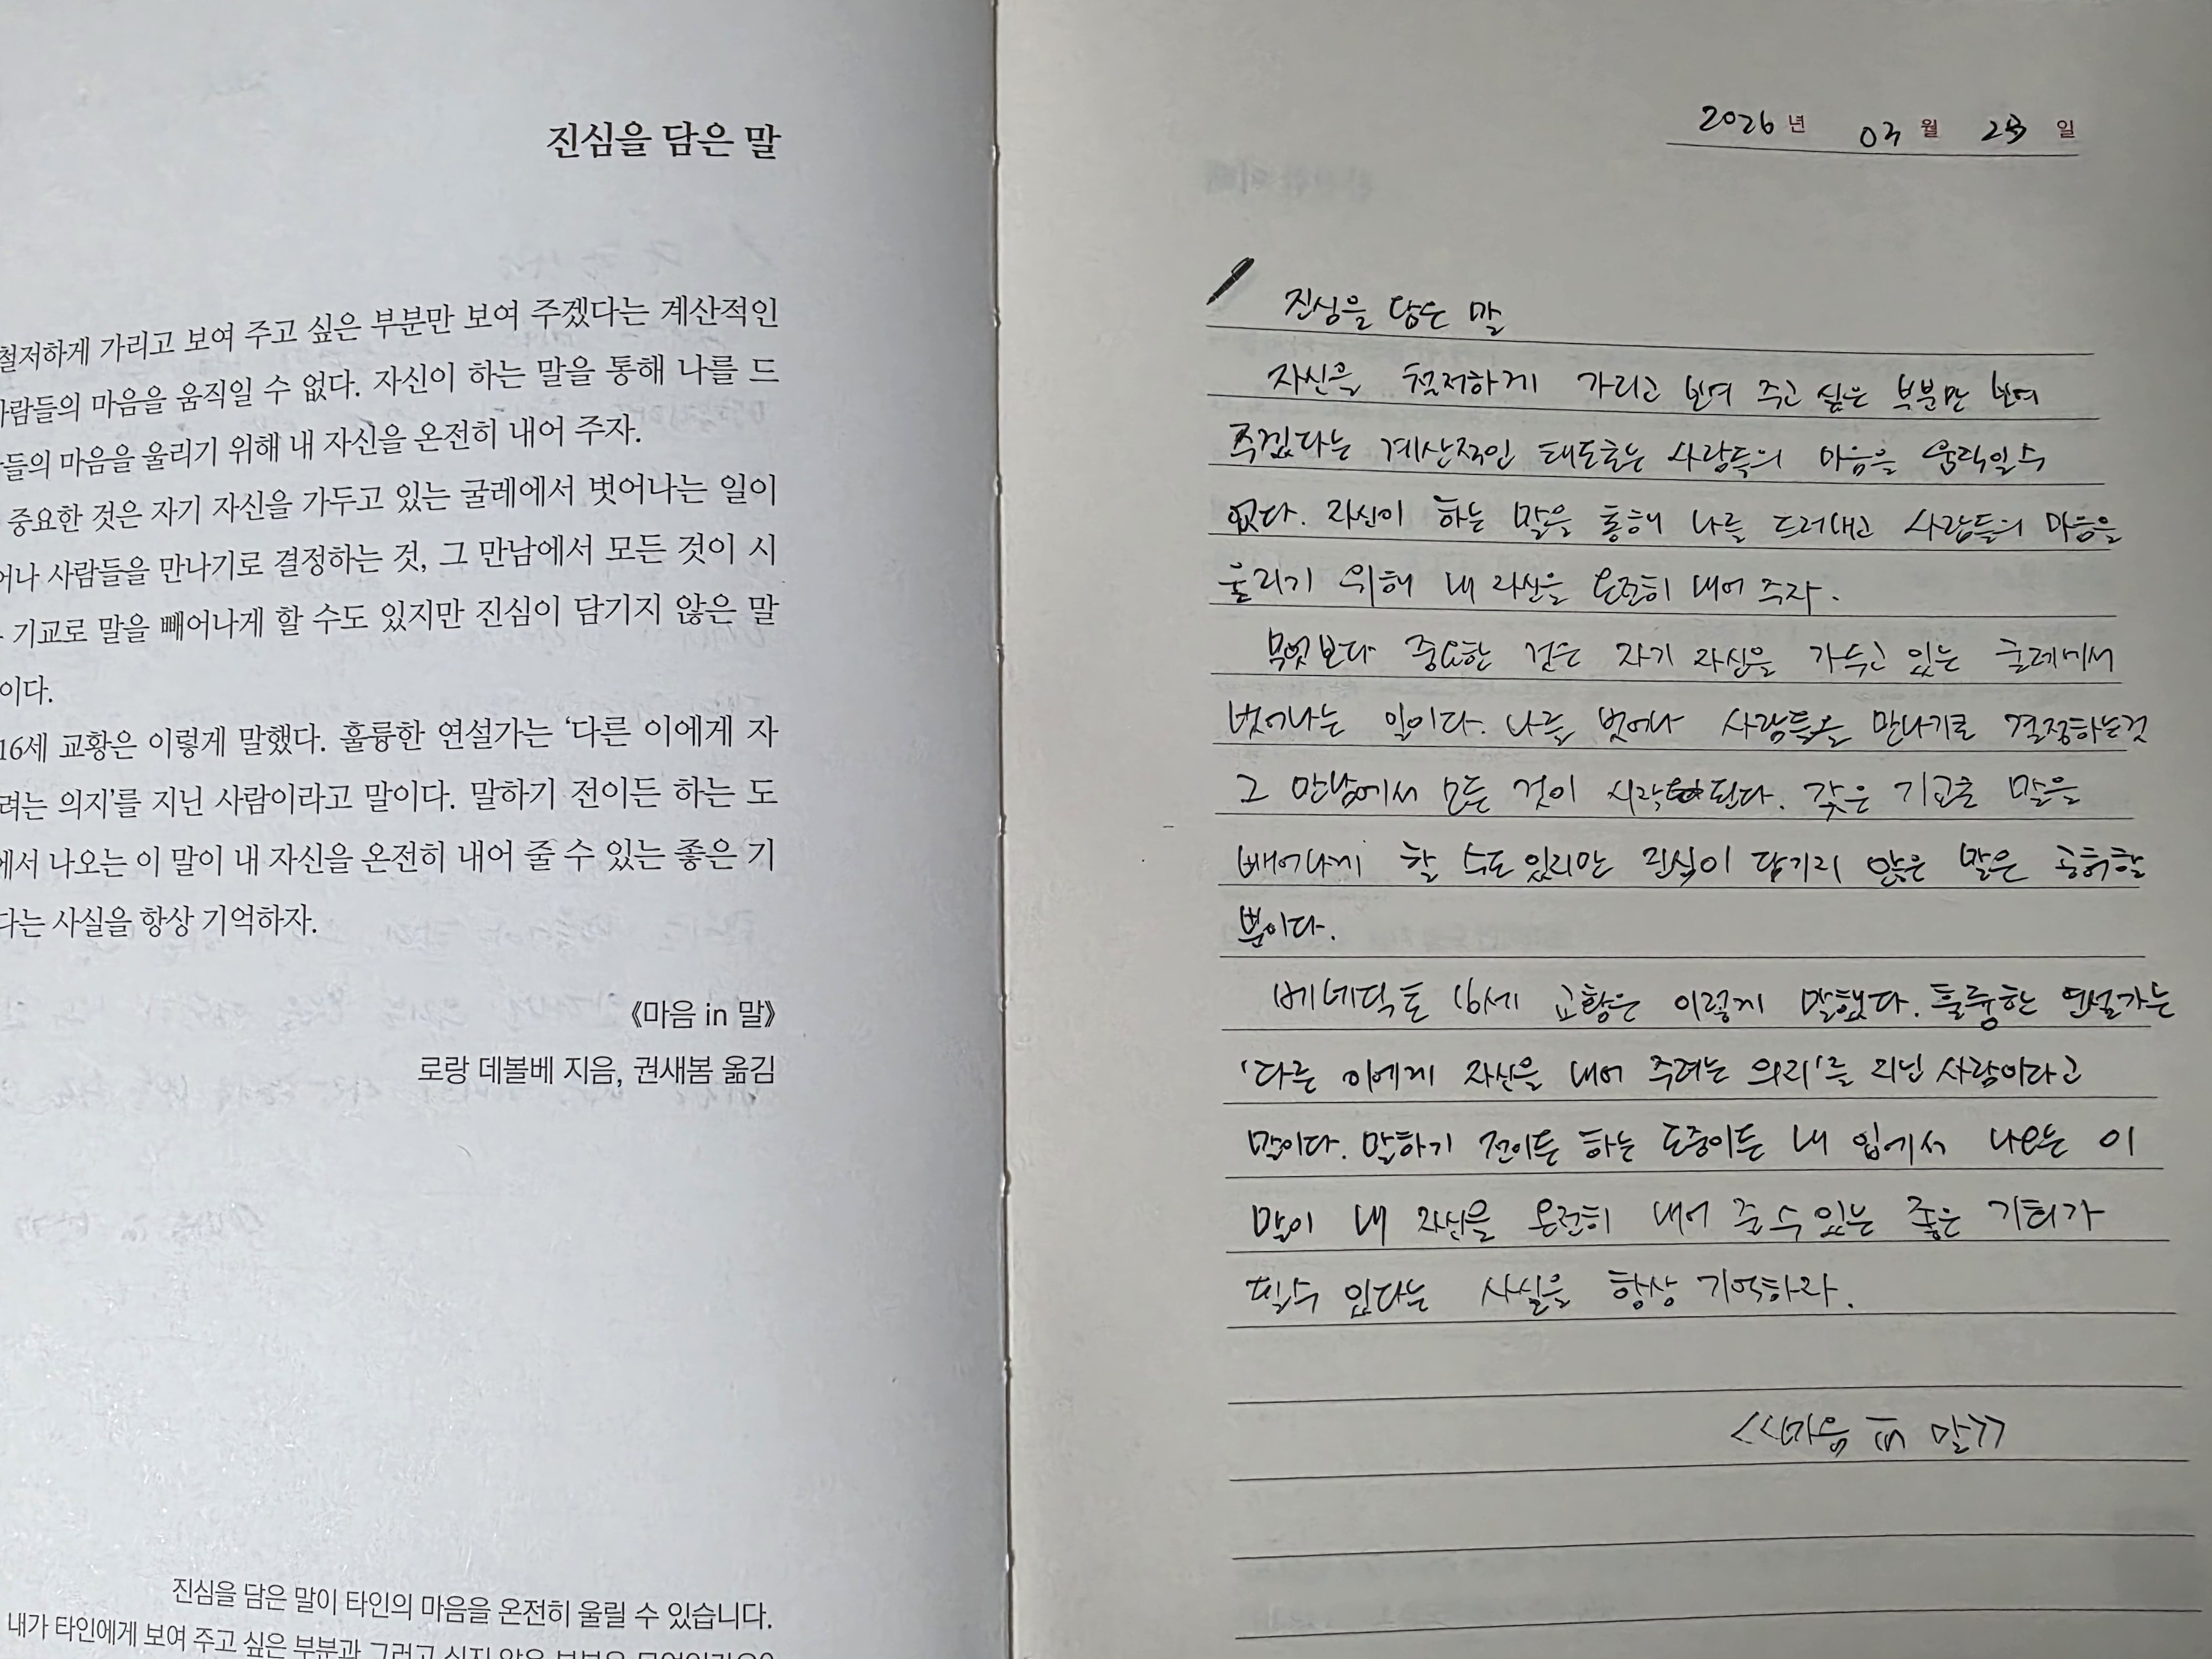 진심을 담은 말
철저하게 가리고 보여 주고 싶은 부분만 보여 주겠다는 계산적인
사람들의 마음을 움직일 수 없다. 자신이 하는 말을 통해 나를 드
들의 마음을 울리기 위해 내 자신을 온전히 내어 주자.
중요한 것은 자기 자신을 가두고 있는 굴레에서 벗어나는 일이
어나 사람들을 만나기로 결정하는 것, 그 만남에서 모든 것이 시
기교로 말을 빼어나게 할 수도 있지만 진심이 담기지 않은 말
이다.
16세 교황은 이렇게 말했다. 훌륭한 연설가는 ‘다른 이에게 자
려는 의지’를 지닌 사람이라고 말이다. 말하기 전이든 하는 도
에서 나오는 이 말이 내 자신을 온전히 내어 줄 수 있는 좋은 기
다는 사실을 항상 기억하자.
《마음 in 말》
로랑 데볼베 지음, 권새봄 옮김
진심을 담은 말이 타인의 마음을 온전히 울릴 수 있습니다.
내가 타인에게 보여 주고 싶은 부분과 그러고 싶지 않은 부분은 무엇인가요?
2026년 03월 23일
진심을 담은 말
자신을 철저하게 가리고 보여 주고 싶은 부분만 보여
주겠다는 계산적인 태도로는 사람들의 마음을 움직일수
없다. 자신이 하는 말을 통해 나를 드러내고 사람들의 마음을
울리기 위해 내 자신을 온전히 내어 주자.
무엇보다 중요한 것은 자기 자신을 가두고 있는 굴레에서
벗어나는 일이다. 나를 벗어나 사람들을 만나기로 결정하는것
그 만남에서 모든 것이 시작된다. 갖은 기교로 말을
빼어나게 할 수도 있지만 진심이 담기지 않은 말은 공허할
뿐이다.
베네딕토 16세 교황은 이렇게 말했다. 훌륭한 연설가는
'다른 이에게 자신을 내어 주려는 의지'를 지닌 사람이라고
말이다. 말하기 전이든 하는 도중이든 내 입에서 나오는 이
말이 내 자신을 온전히 내어 줄 수 있는 좋은 기회가
될수 있다는 사실을 항상 기억하자.
<<마음 in 말>>